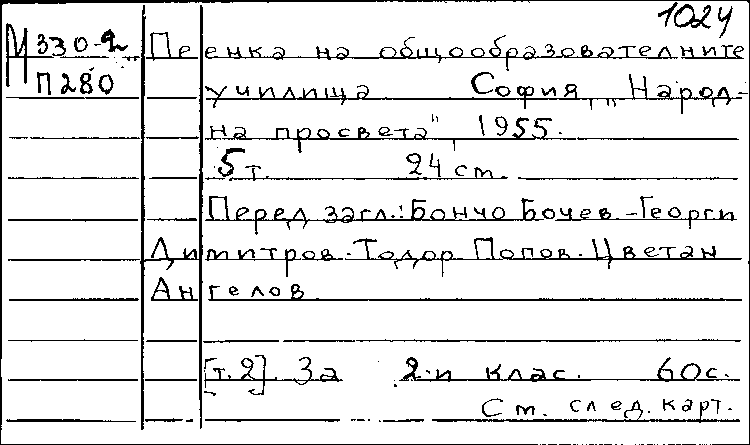 1024
М 330-2 Пеенка на общообразователните
П280 училища София, „Народ-
на просвета", 1955.
5 т. 24 см.
Перед загл.: Бончо Бочев - Георги
Димитров. Тодор Попов. Цветан
Ангелов.
[т.2]. За 2-и клас. 60 с.
См. след. карт.